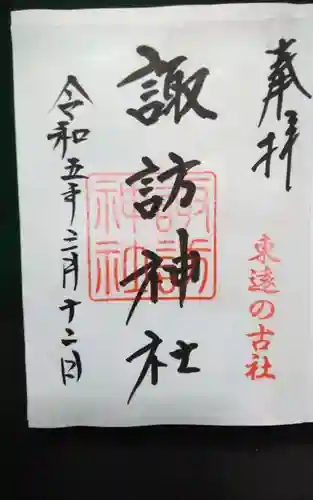 奉拝
東遠の古社
諏訪神社
諏訪
神社
令和五年二月十二日